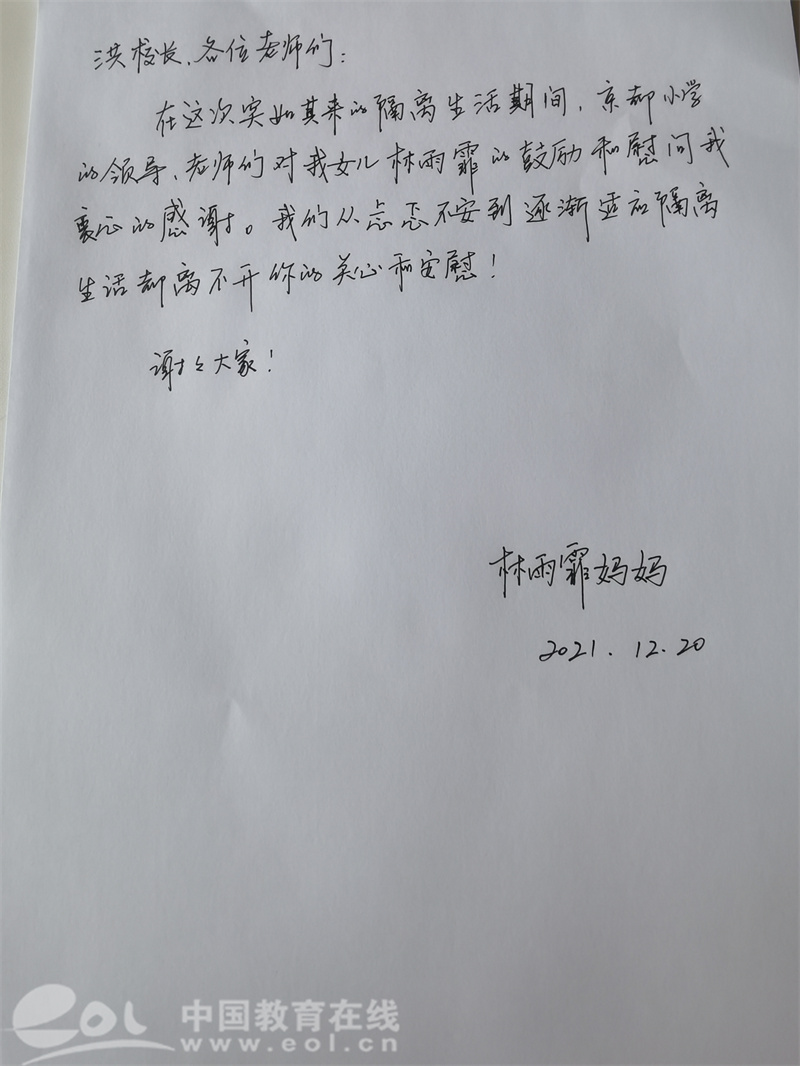 洪校长、各位老师们：
在这次突如其来的隔离生活期间，京都小学
的领导、老师们对我女儿林雨霏的鼓励和慰问我
衷心的感谢。我们从忐忑不安到逐渐适应隔离
生活都离不开你的关心和安慰！
谢谢大家！
林雨霏妈妈
2021.12.20
eol 中国教育在线
www.eol.cn